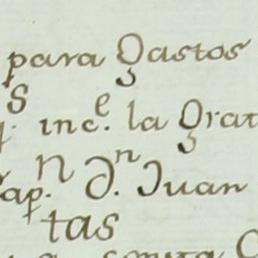 para Gastos
S
inc.e la Grat
ap.n D.n Juan
tas